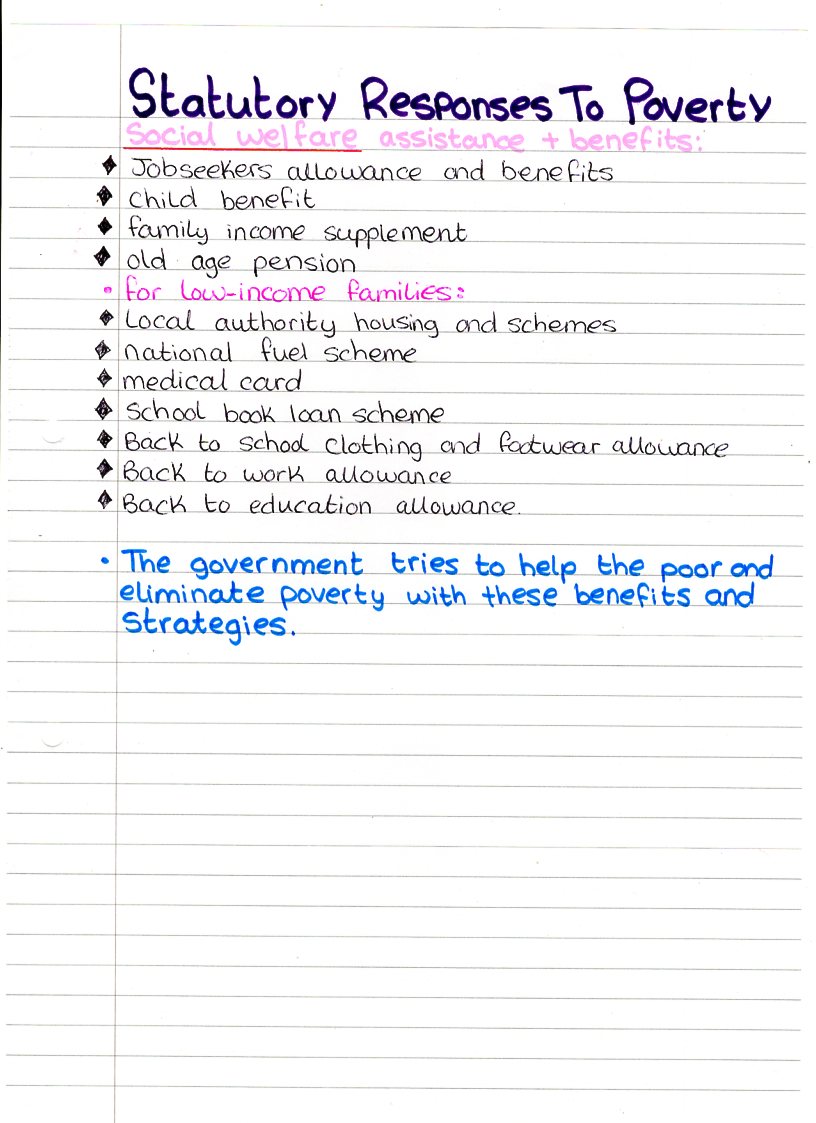 Statutory Responses To Poverty
Social welfare assistance + benefits:
♦ Jobseekers allowance and benefits
♦ child benefit
♦ family income supplement
♦ old age pension
• for low-income families:
♦ Local authority housing and schemes
♦ national fuel scheme
♦ medical card
♦ School book loan scheme
♦ Back to school clothing and footwear allowance
♦ Back to work allowance
♦ Back to education allowance.
• The government tries to help the poor and
eliminate poverty with these benefits and
Strategies.